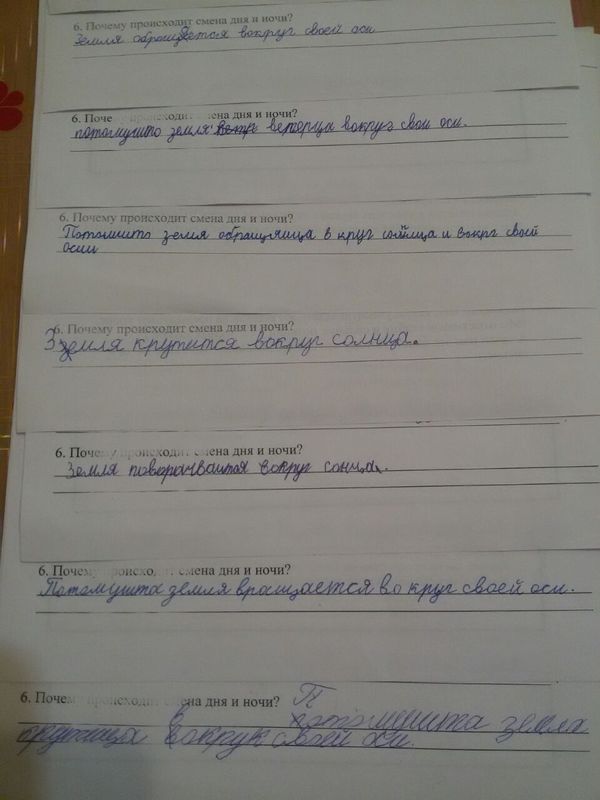 6. Почему происходит смена дня и ночи?
Земля обращается вокруг своей оси
6. Почему происходит смена дня и ночи?
потомушто земля веторца вокруг свои оси.
6. Почему происходит смена дня и ночи?
Потомишто земля обращяица в круг сонлца и вокрг своей
осии
6. Почему происходит смена дня и ночи?
Земля крутится вокруг солнца.
6. Почему происходит смена дня и ночи?
Земля поворачваится вокруг сонца.
6. Почему происходит смена дня и ночи?
Потомушта земля вращается во круг своей оси.
6. Почему происходит смена дня и ночи? П
потомушита земля
крутица вокрук своей оси.